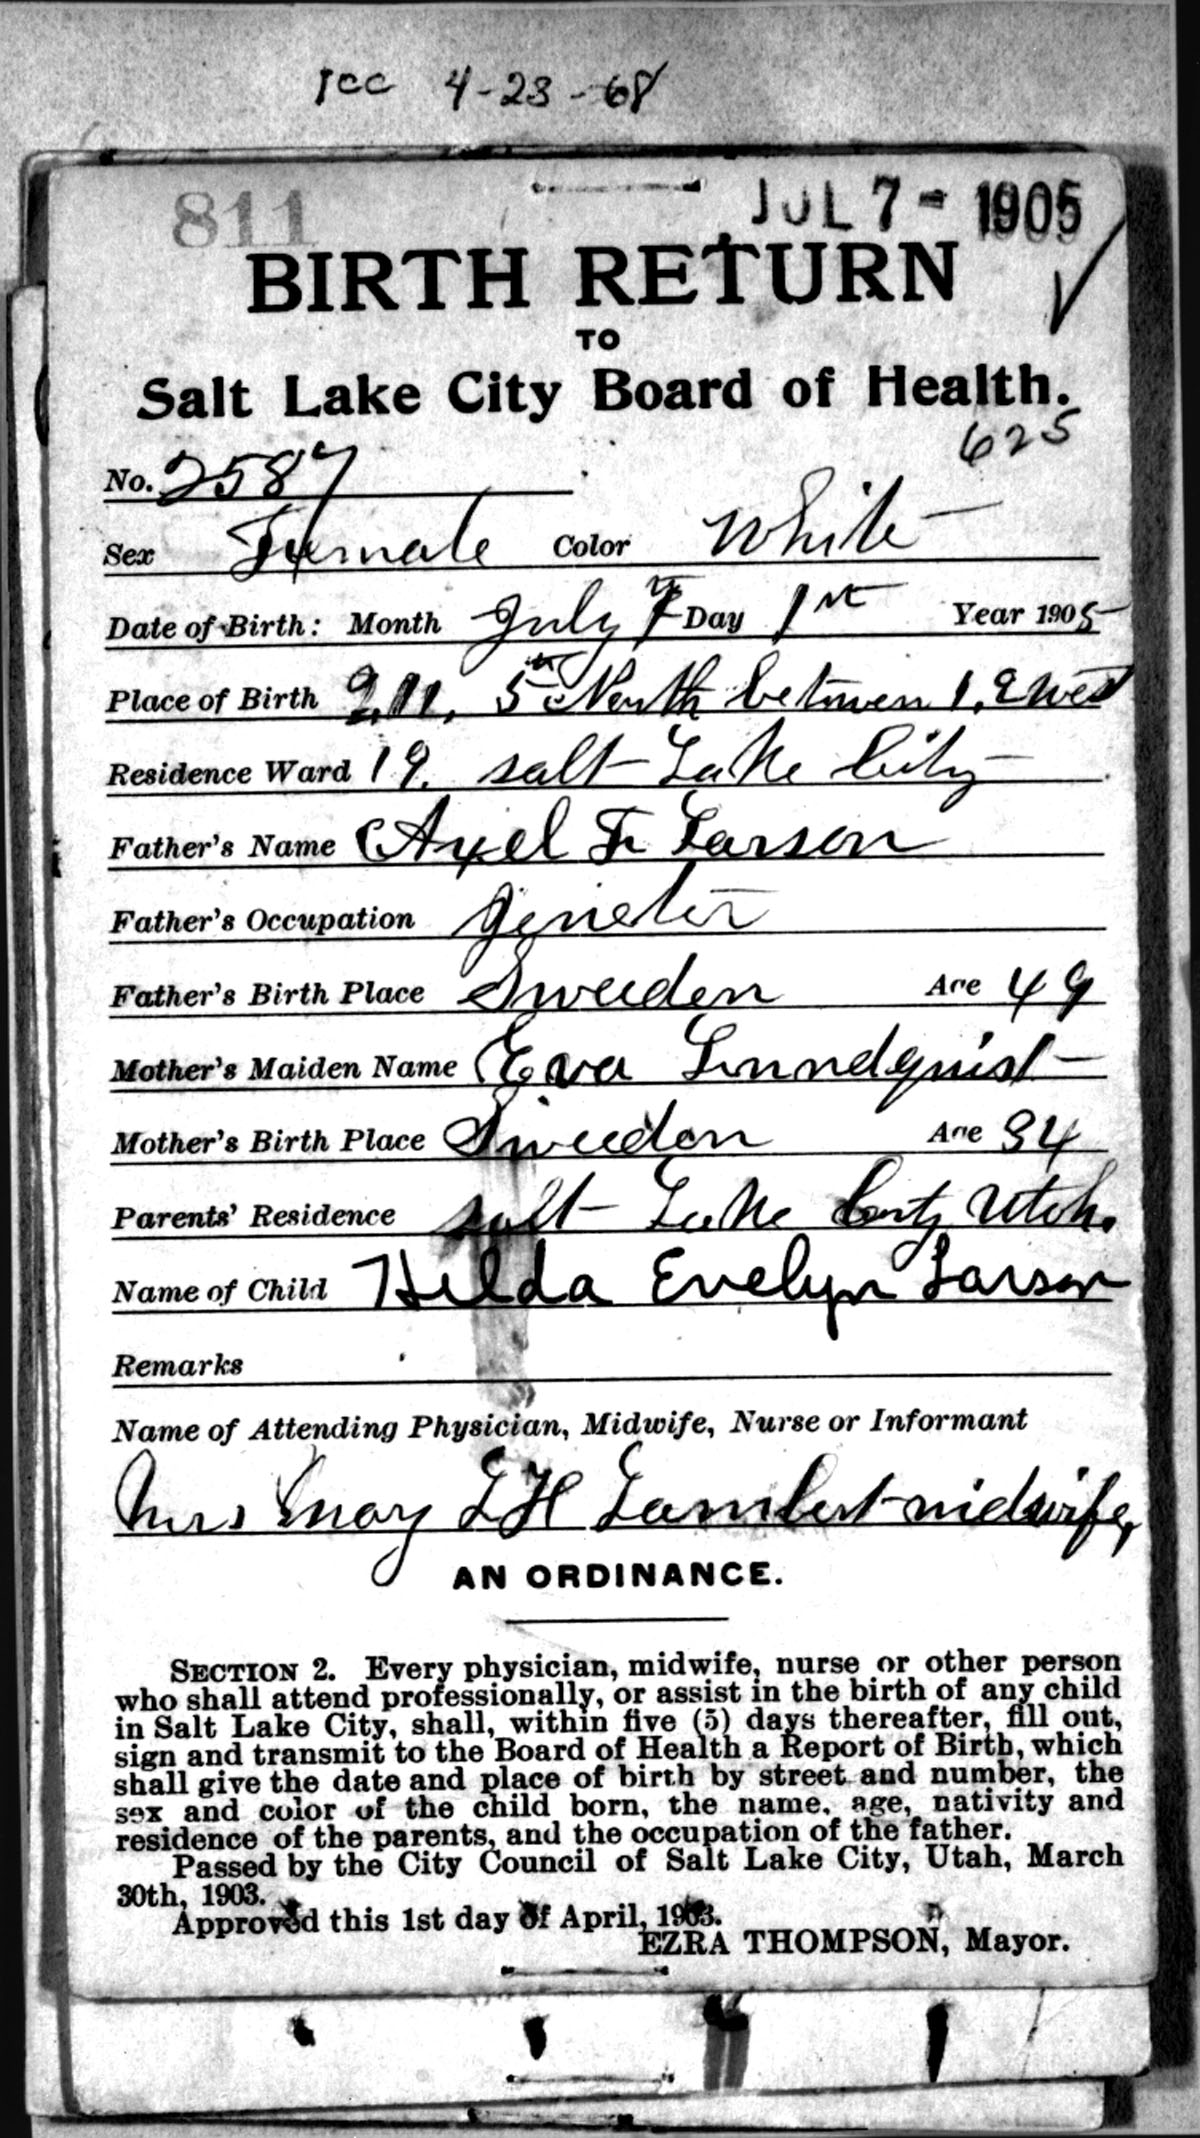 rcc 4-23-68
811 JUL 7 - 1905
BIRTH RETURN
TO
Salt Lake City Board of Health.
625
No. 2587
Sex Female Color White
Date of Birth: Month July Day 1st Year 1905
Place of Birth 5th North between 1, 2 West
Residence Ward 19. Salt Lake City
Father's Name Axel F. Larson
Father's Occupation Jeneter
Father's Birth Place Sweeden Age 49
Mother's Maiden Name Eva Lunndquist
Mother's Birth Place Sweedon Age 34
Parents' Residence Salt Lake City Utah.
Name of Child Hilda Evelyn Larson
Remarks
Name of Attending Physician, Midwife, Nurse or Informant
Mrs May L H Lambert midwife,
AN ORDINANCE.
SECTION 2. Every physician, midwife, nurse or other person
who shall attend professionally, or assist in the birth of any child
in Salt Lake City, shall, within five (5) days thereafter, fill out,
sign and transmit to the Board of Health a Report of Birth, which
shall give the date and place of birth by street and number, the
sex and color of the child born, the name, age, nativity and
residence of the parents, and the occupation of the father.
Passed by the City Council of Salt Lake City, Utah, March
30th, 1903.
Approved this 1st day of April, 1903.
EZRA THOMPSON, Mayor.